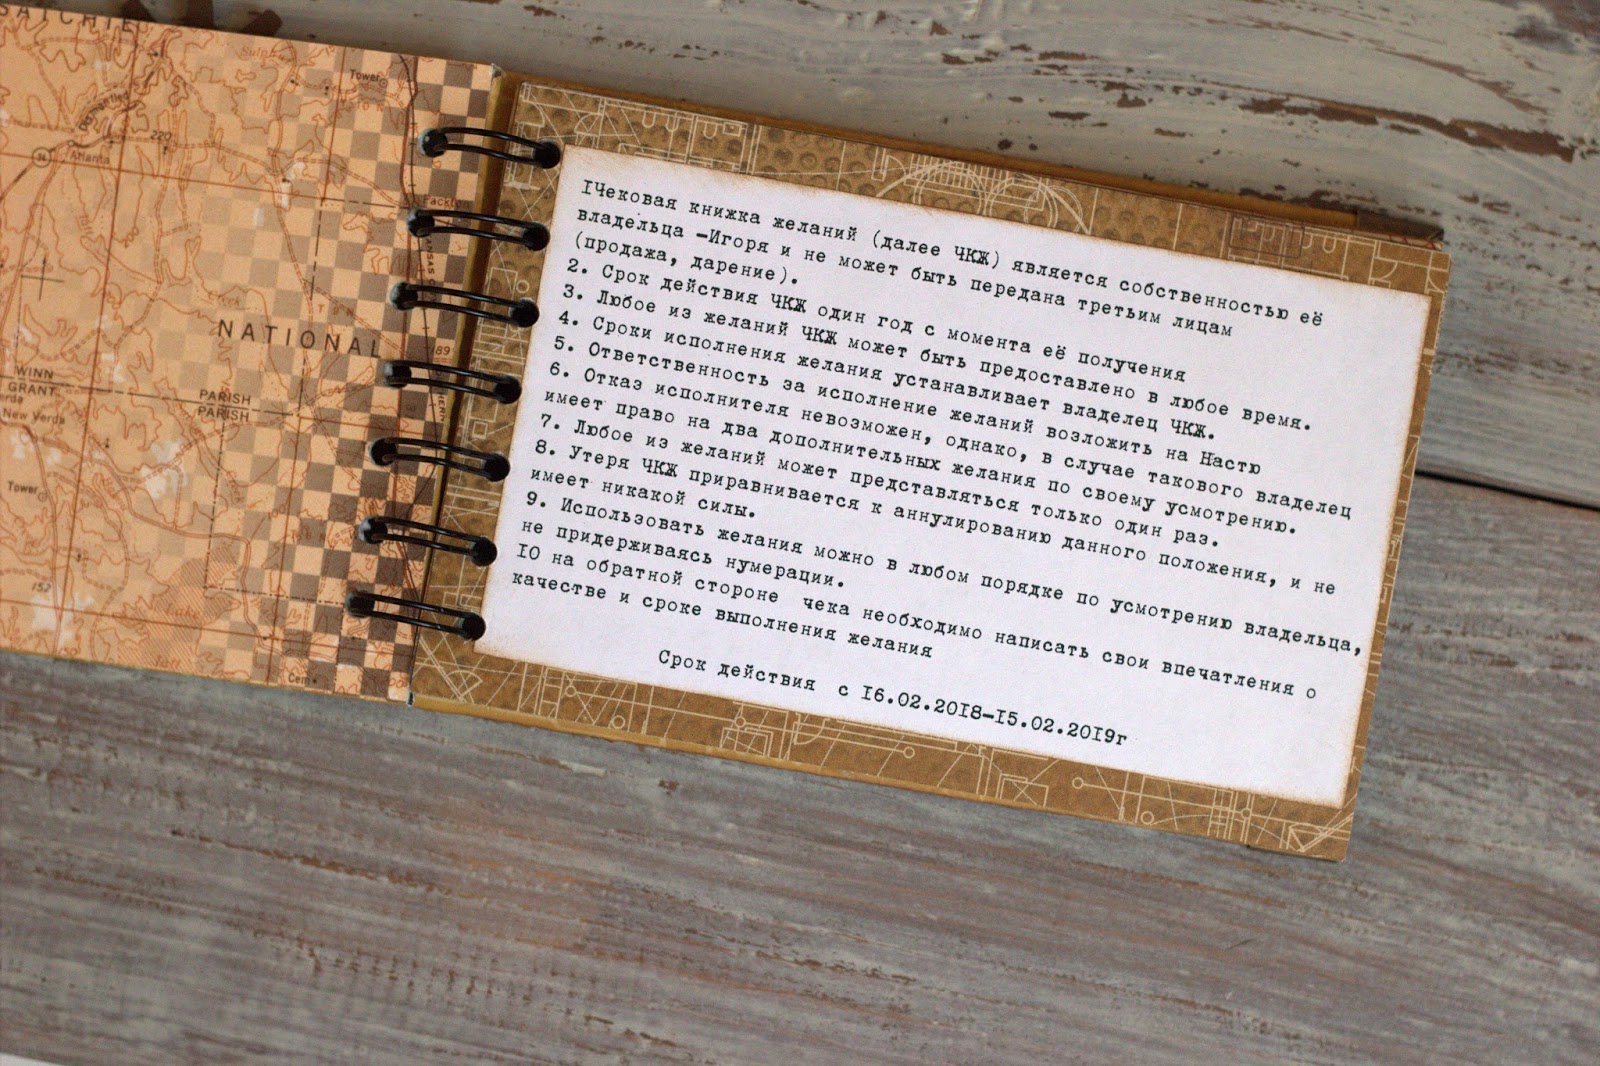 SATCHIE
Sulphur
Tower
Atlanta
220
Packton
NATIONAL
189
WINN
GRANT
PARISH
PARISH
New Verda
Tower
152
Cem
1Чековая книжка желаний (далее ЧКЖ) является собственностью её
владельца –Игоря и не может быть передана третьим лицам
(продажа, дарение).
2. Срок действия ЧКЖ один год с момента её получения
3. Любое из желаний ЧКЖ может быть предоставлено в любое время.
4. Сроки исполнения желания устанавливает владелец ЧКЖ.
5. Ответственность за исполнение желаний возложить на Настю
6. Отказ исполнителя невозможен, однако, в случае такового владелец
имеет право на два дополнительных желания по своему усмотрению.
7. Любое из желаний может представляться только один раз.
8. Утеря ЧКЖ приравнивается к аннулированию данного положения, и не
имеет никакой силы.
9. Использовать желания можно в любом порядке по усмотрению владельца,
не придерживаясь нумерации.
10 на обратной стороне чека необходимо написать свои впечатления о
качестве и сроке выполнения желания
Срок действия с 16.02.2018–15.02.2019г